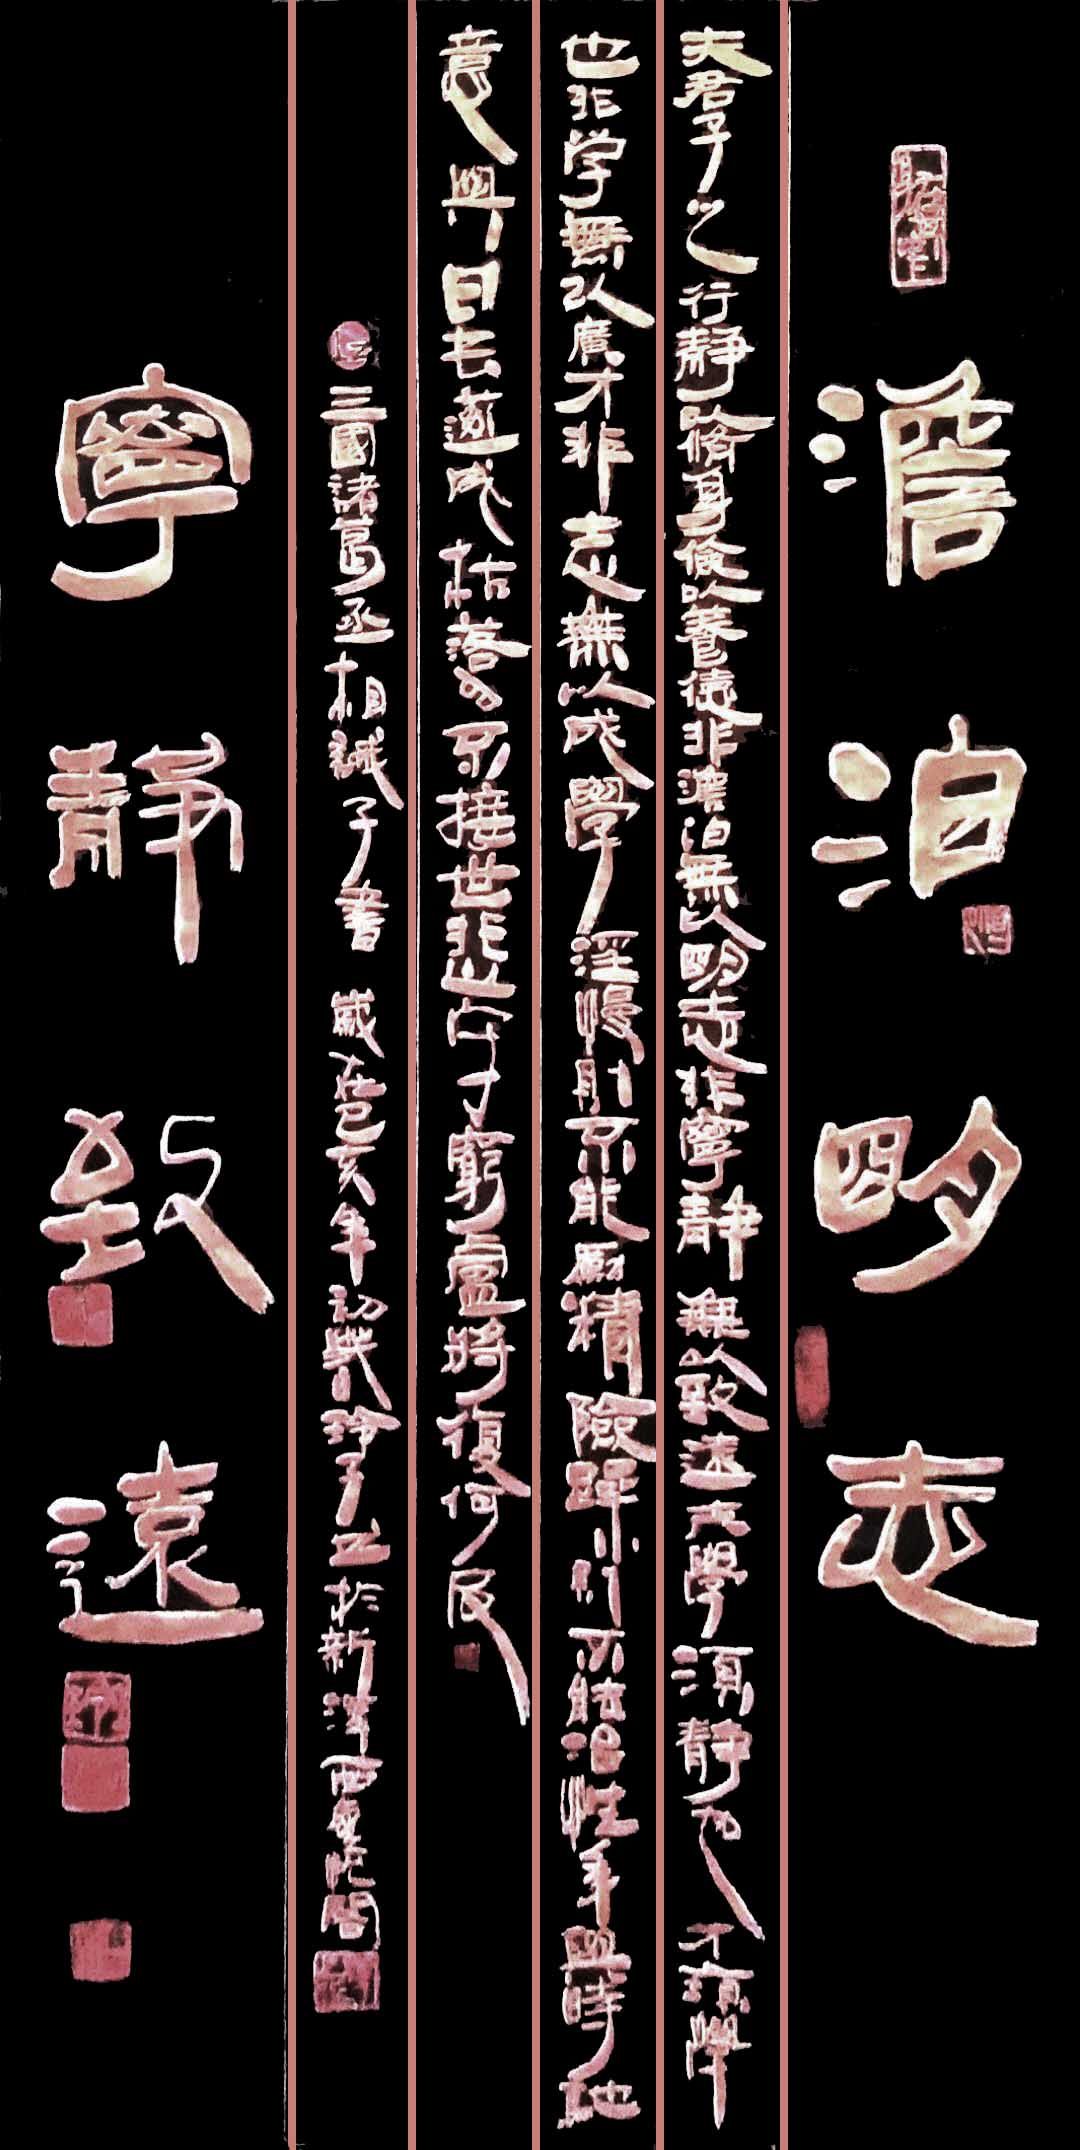 澹泊明志
夫君子之行静以脩身儉以養德非澹泊無以明志非寧静無以致遠夫學須静也才須學
也非学無以廣才非志無以成學淫慢則不能勵精險躁則不能治性年與時馳
意與日去遂成枯落多不接世悲守窮廬將復何及
三國諸葛丞相誡子書 歲在己亥年初
寧静致遠